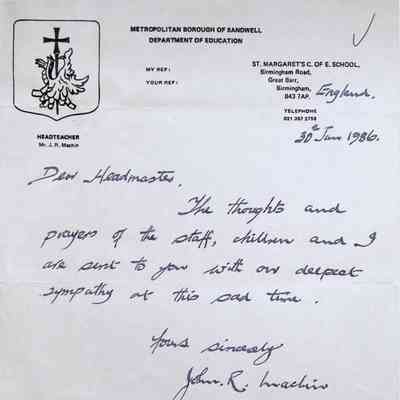 METROPOLITAN BOROUGH OF SANDWELL
DEPARTMENT OF EDUCATION
MY REF:
YOUR REF:
ST. MARGARET'S C. OF E. SCHOOL,
Birmingham Road,
Great Barr,
Birmingham,
B43 7AP. England.
TELEPHONE
021 357 2759
HEADTEACHER
Mr. J. R. Machin
30th Jan 1986.
Dear Headmaster,
The thoughts and
prayers of the staff, children and I
are sent to you with our deepest
sympathy at this sad time.
Yours sincerely
John. R. Machin